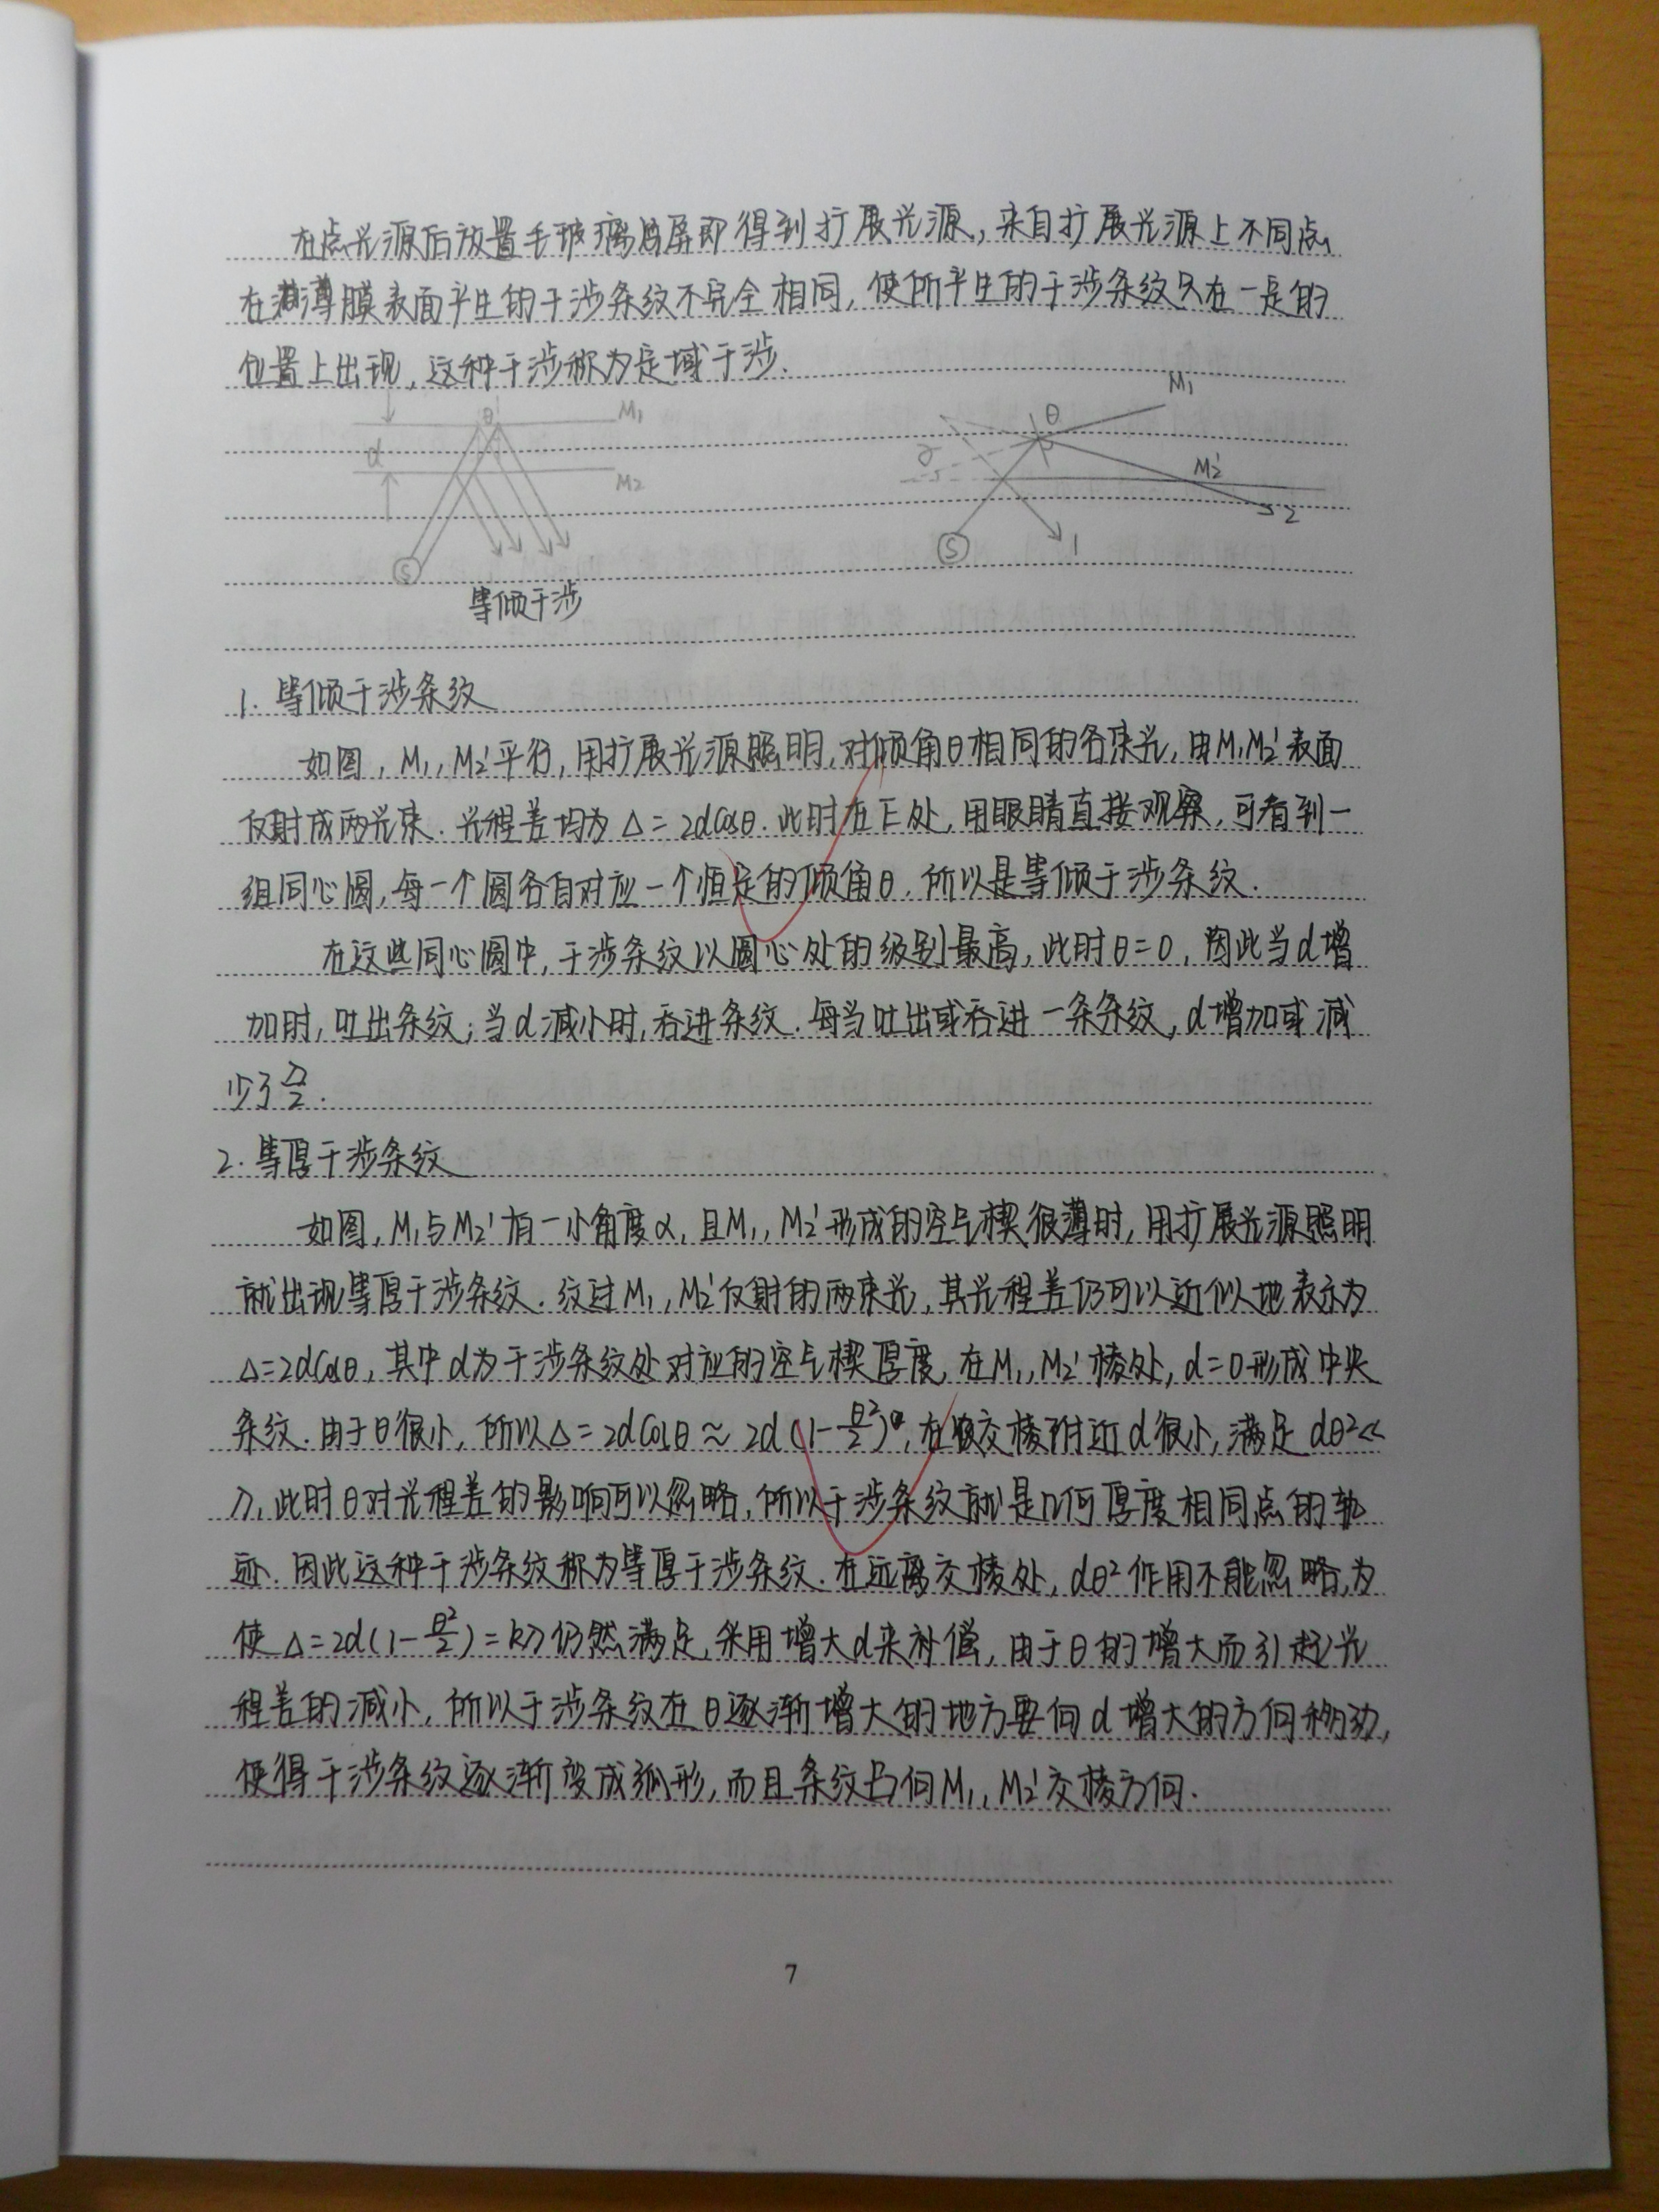 在点光源后放置毛玻璃屏即得到扩展光源,来自扩展光源上不同点
在薄膜表面产生的干涉条纹不完全相同,使所产生的干涉条纹只在一定的
位置上出现,这种干涉称为定域干涉.
θ M₁ M₁
d θ
M₂ M₂′
2
S S 1
等倾干涉
1. 等倾干涉条纹
如图, M₁, M₂′平行,用扩展光源照明,对倾角θ相同的各束光,由M₁M₂′表面
反射成两光束.光程差均为Δ=2dcosθ.此时在E处,用眼睛直接观察,可看到一
组同心圆,每一个圆各自对应一个恒定的倾角θ.所以是等倾干涉条纹.
在这些同心圆中,干涉条纹以圆心处的级别最高,此时θ=0,因此当d增
加时,吐出条纹;当d减小时,吞进条纹.每当吐出或吞进一条条纹,d增加或减
少了λ/2.
2. 等厚干涉条纹
如图, M₁与M₂′有一小角度α,且M₁, M₂′形成的空气楔很薄时,用扩展光源照明
就出现等厚干涉条纹.纹过M₁, M₂′反射的两束光,其光程差仍可以近似地表示为
Δ=2dcosθ,其中d为干涉条纹处对应的空气楔厚度,在M₁, M₂′棱处,d=0形成中央
条纹.由于θ很小,所以Δ=2dcosθ≈2d(1-θ²/2),在交棱附近d很小,满足dθ²<<
λ,此时θ对光程差的影响可以忽略,所以干涉条纹就是几何厚度相同点的轨
迹.因此这种干涉条纹称为等厚干涉条纹.在远离交棱处,dθ²作用不能忽略,为
使Δ=2d(1-θ²/2)=kλ仍然满足,采用增大d来补偿,由于θ的增大而引起光
程差的减小,所以干涉条纹在θ逐渐增大的地方要向d增大的方向移动,
使得干涉条纹逐渐变成弧形,而且条纹凸向M₁, M₂′交棱方向.
7